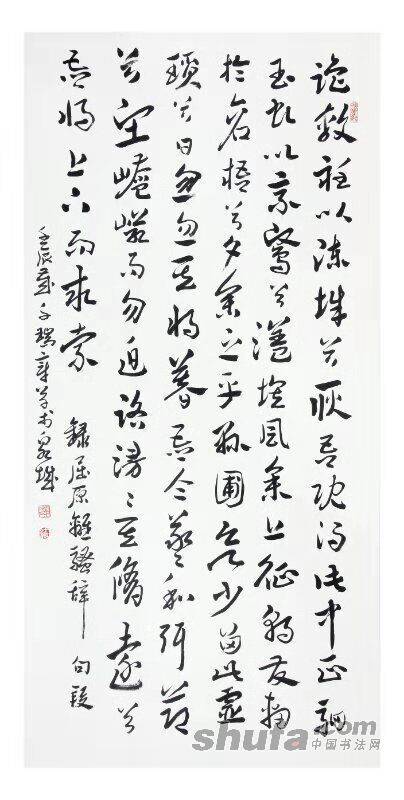 跪敷衽以陳辭兮耿吾既得此中正駟
玉虬以乘鷖兮溘埃風余上征朝發軔
於蒼梧兮夕余至乎縣圃欲少留此靈
瑣兮日忽忽其將暮吾令羲和弭節
兮望崦嵫而勿迫路漫漫其脩遠兮
吾將上下而求索
錄屈原離騷辭句段
壬辰歲千瑞章草於泉城
shufa.com
中国书法网